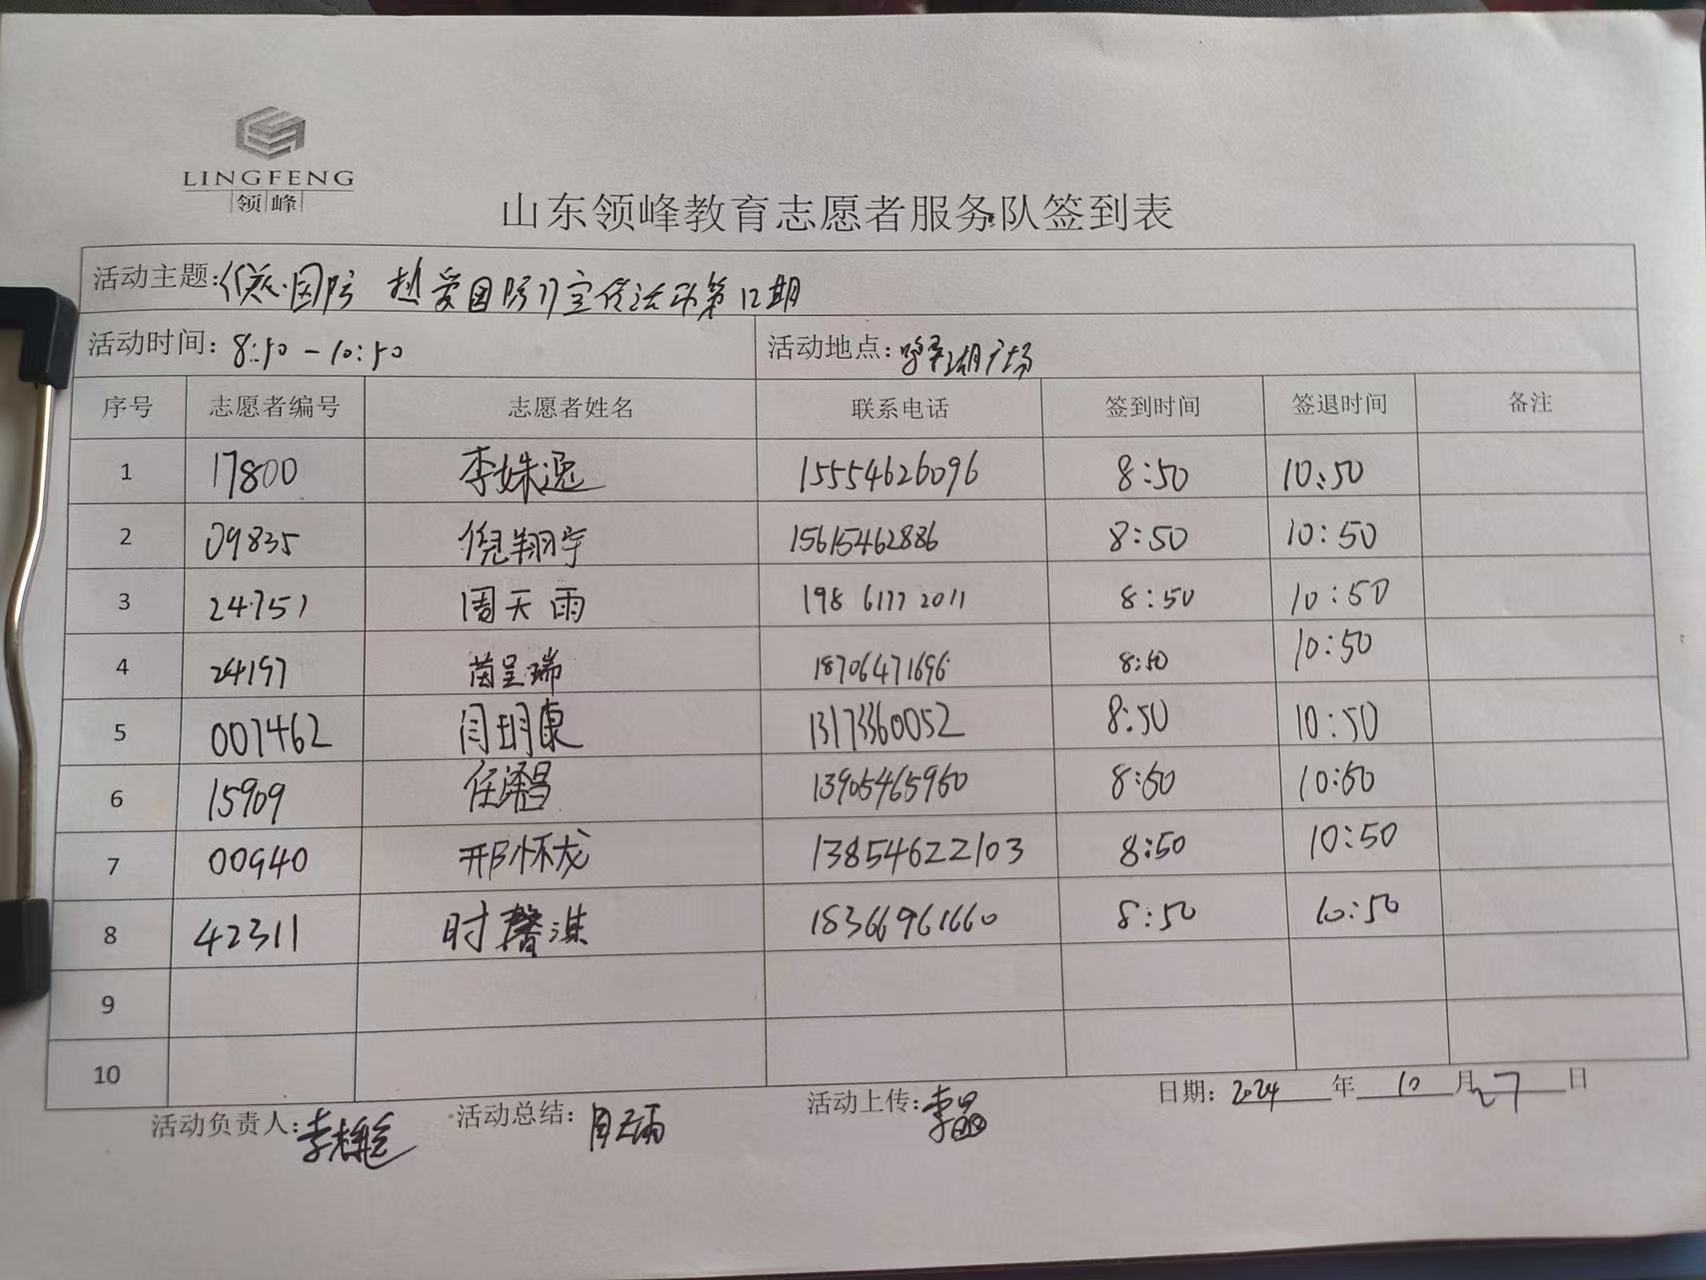 LINGFENG
领峰
山东领峰教育志愿者服务队签到表
活动主题: 国防 热爱国防门宣传活动第12期
活动时间: 8:50-10:50 活动地点: 广场
序号 志愿者编号 志愿者姓名 联系电话 签到时间 签退时间 备注
1 17800 李姝逸 15554626096 8:50 10:50
2 09835 倪翔宇 15615462886 8:50 10:50
3 24751 周天雨 198 6177 2011 8:50 10:50
4 24197 呈瑞 18706471696 8:50 10:50
5 007462 闫玥康 13173360052 8:50 10:50
6 15909 任泽昌 13905465960 8:50 10:50
7 00940 邢怀龙 13854622103 8:50 10:50
8 42311 时馨淇 18366961660 8:50 10:50
9
10
活动负责人: 李姝逸 活动总结: 周天雨 活动上传: 李晶 日期: 2024 年 10 月 27 日